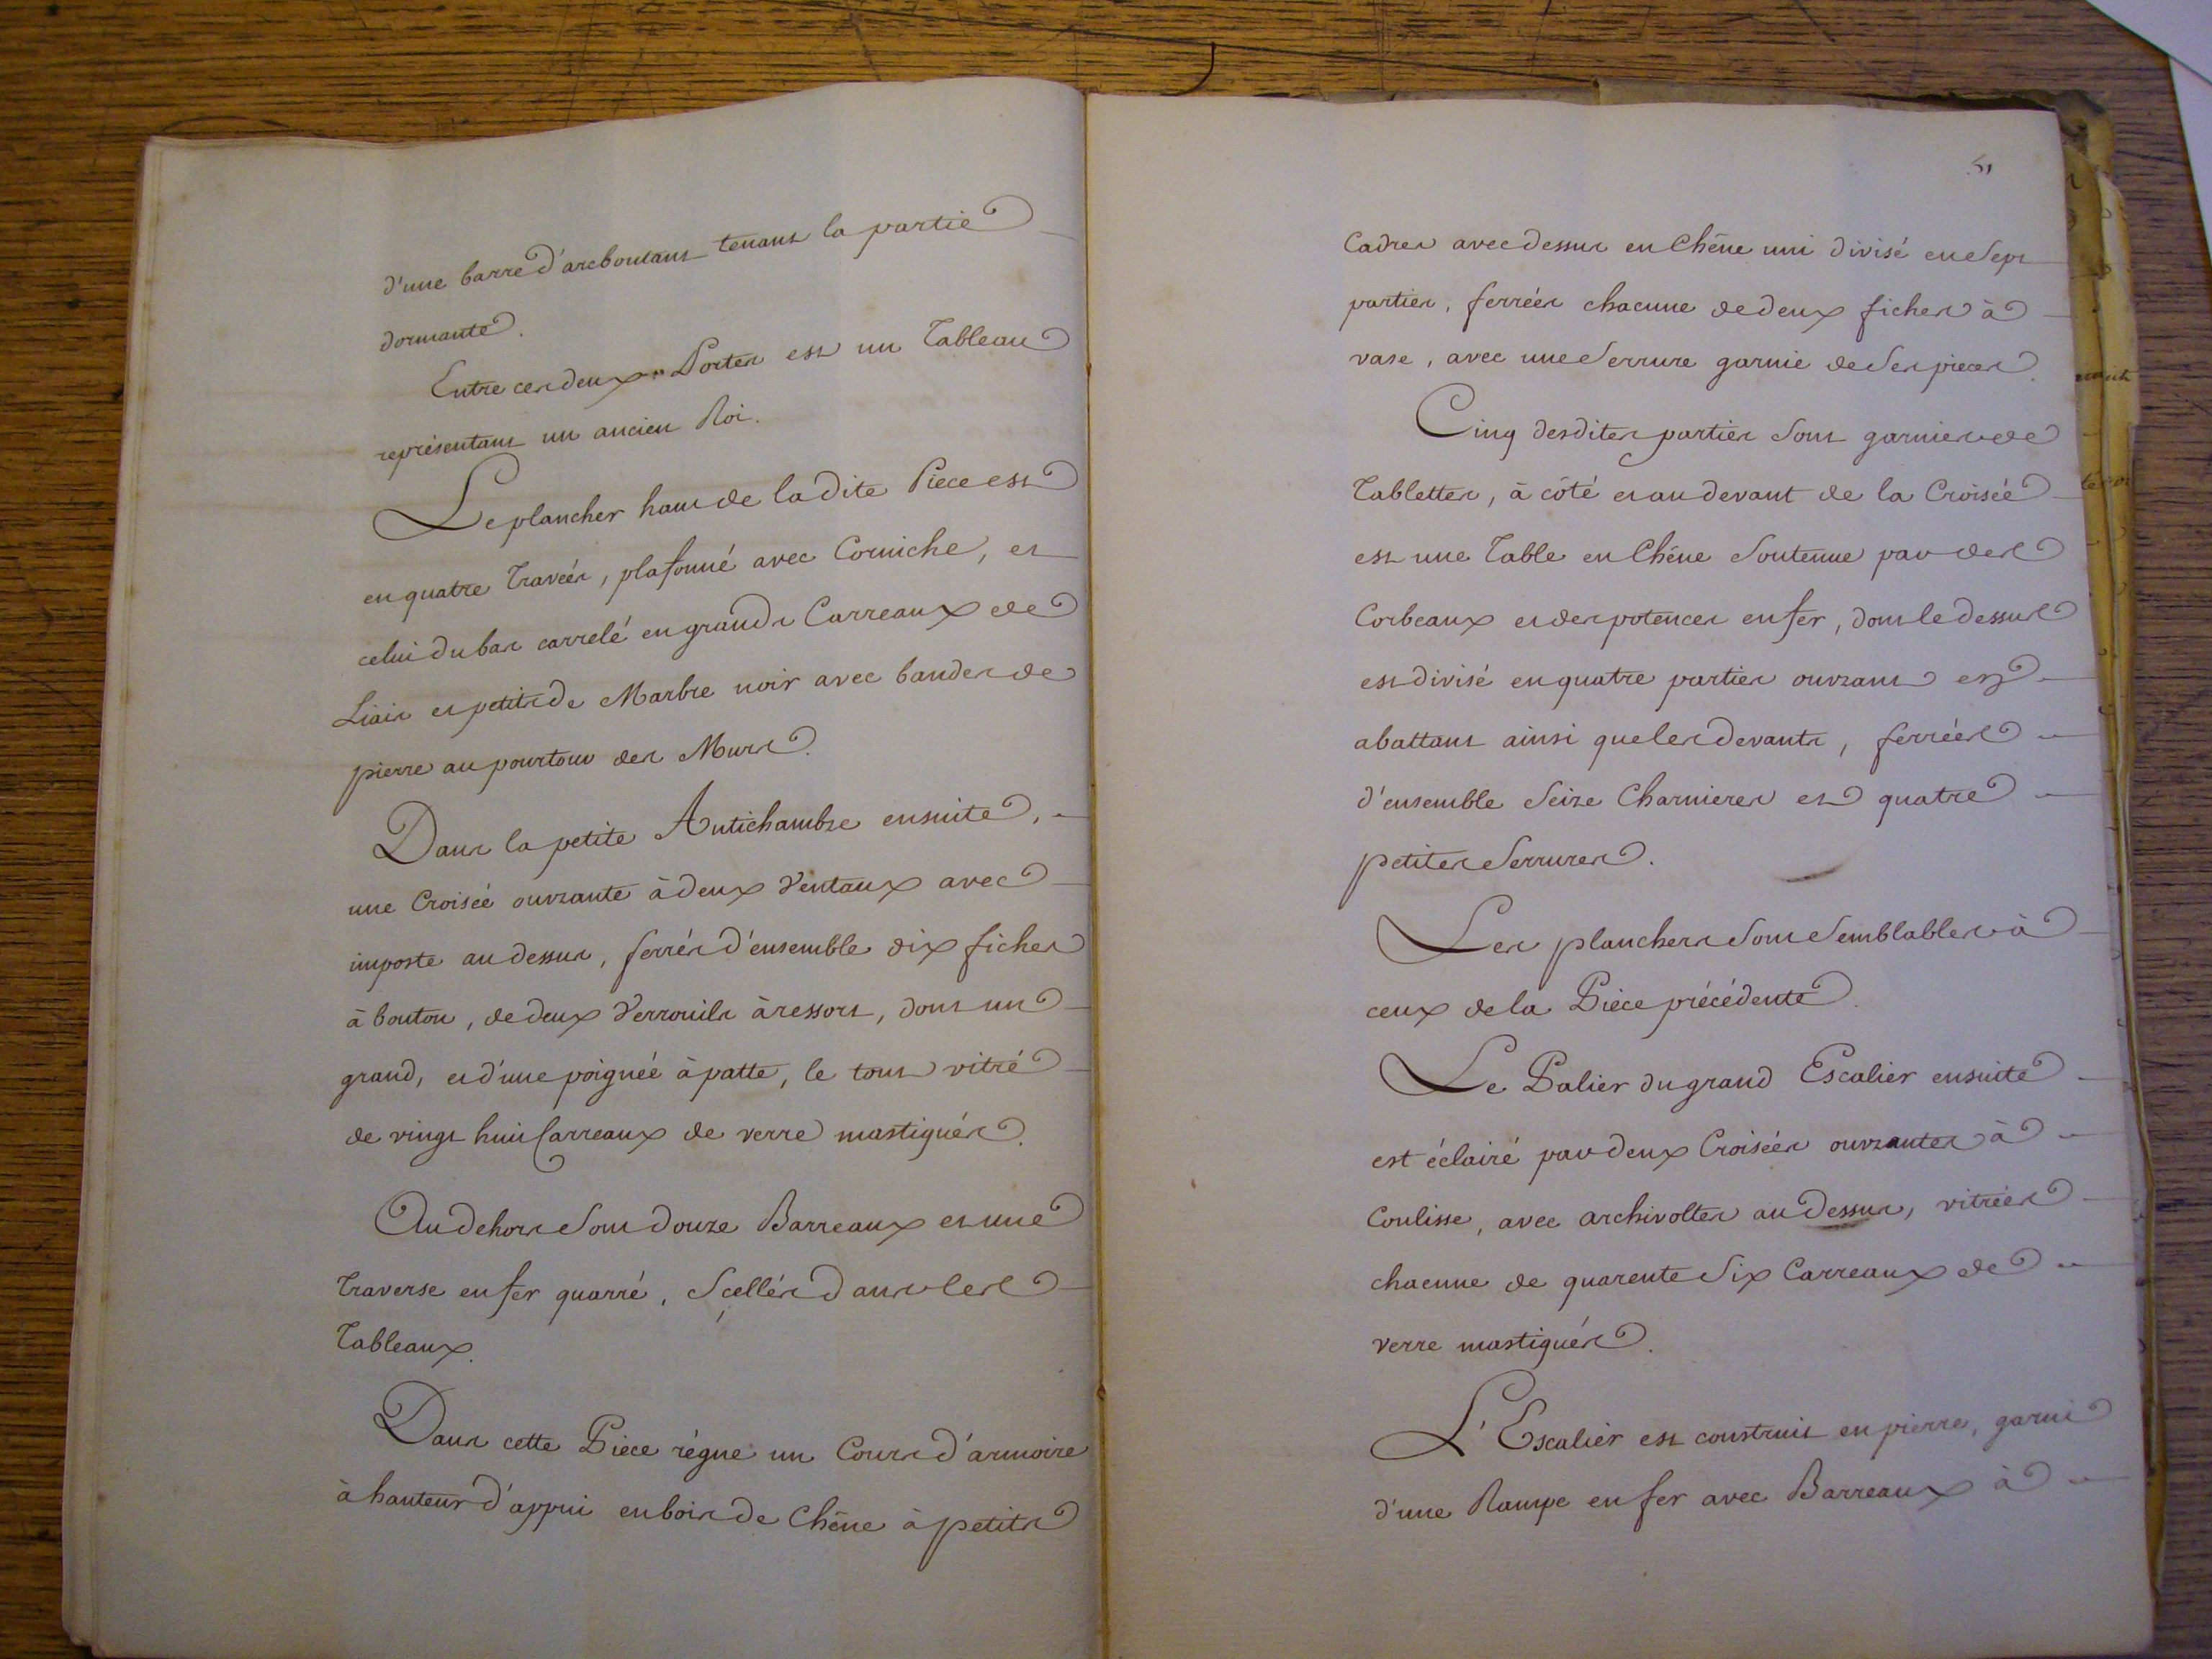 d'une barre d'arcboutant tenant la partie
dormante.
Entre ces deux Portes est un Tableau
représentant un ancien Roi.
Le plancher haut de la dite Piece est
en quatre Travées, plafonné avec Corniche, et
celui du bas carrelé en grands Carreaux de
Liais et petits de Marbre noir avec bandes de
pierre au pourtour des Murs.
Dans la petite Antichambre ensuite,
une Croisée ouvrante à deux Ventaux avec
imposte au dessus, ferrés d'ensemble dix fiches
à bouton, de deux Verrouils à ressort, dont un
grand, et d'une poignée à patte, le tout vitré
de vingt huit Carreaux de verre mastiqués.
Au dehors sont douze Barreaux et une
Traverse en fer quarré, Scellés dans les
Tableaux.
Dans cette Piece règne un Cours d'armoire
à hauteur d'appui en bois de Chêne à petits
51
Cadres avec dessus en Chêne uni divisé en Sept
parties, ferrées chacune de deux fiches à
vase, avec une Serrure garnie de Ses pieces.
Cinq desdites parties Sont garnies de
Tablettes, à côté et au devant de la Croisée
est une Table en Chêne Soutenue par des
Corbeaux et des potences en fer, dont le dessus
est divisé en quatre parties ouvrant et
abattant ainsi que les devants, ferrées
d'ensemble Seize Charnieres et quatre
petites Serrures.
Les planchers Sont Semblables à
ceux de la Pièce précédente.
Le Palier du grand Escalier ensuite
est éclairé par deux Croisées ouvrantes à
Coulisse, avec archivoltes au dessus, vitrées
chacune de quarente Six Carreaux de
verre mastiqués.
L'Escalier est construit en pierre, garni
d'une Rampe en fer avec Barreaux à